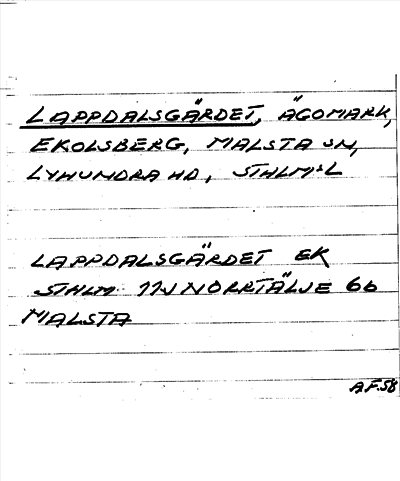 LAPPDALSGÄRDET, ÄGOMARK,
EKOLSBERG, MALSTA SN,
LYHUNDRA HD, STHLMS L
LAPPDALSGÄRDET EK
STHLM 11J NORRTÄLJE 6b
MALSTA
A.F.58